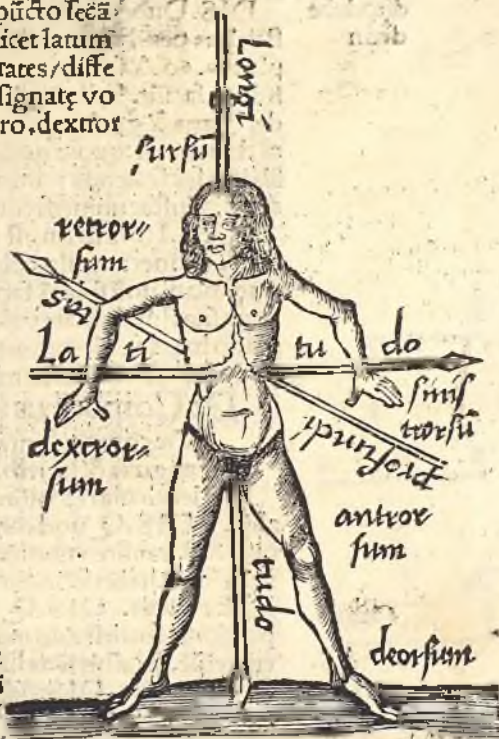 pūcto secā
icet latum
tates/diffe
signatę vo
ro, dextror
Longi
sursū
retror=
sum
tas
La ti tu do
sinis
trorsū
profundi
dextror=
sum
antror
sum
tudo
deorsum